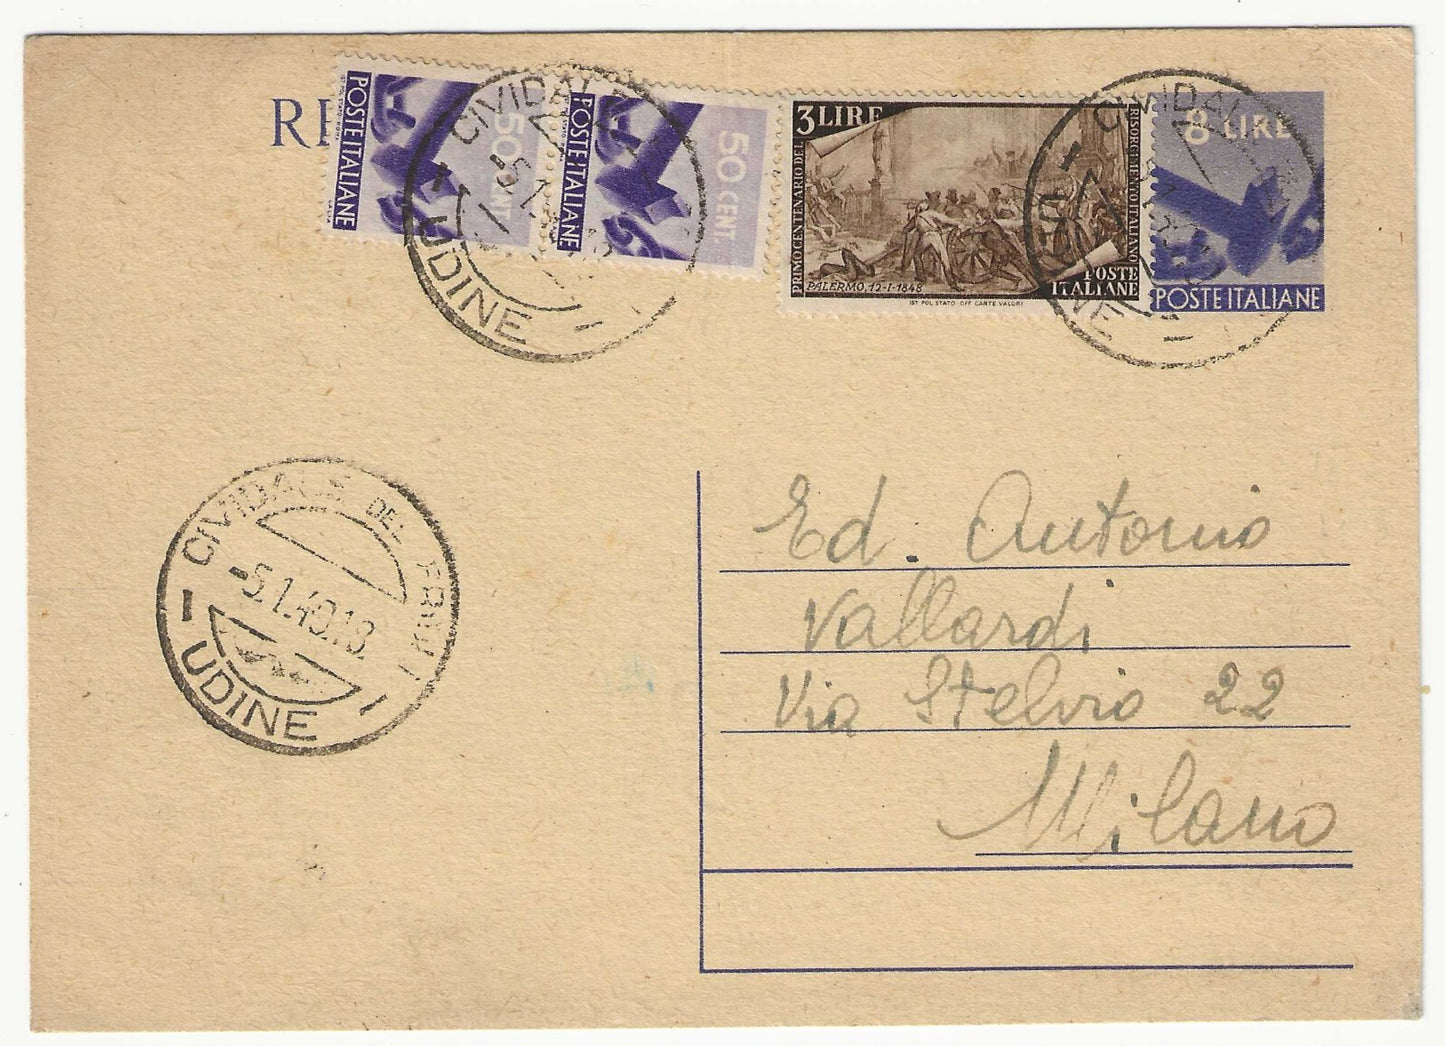 RE
POSTE ITALIANE
50 CENT.
POSTE ITALIANE
50 CENT.
3 LIRE
PRIMO CENTENARIO DEL
RISORGIMENTO ITALIANO
PALERMO, 12-I-1848
POSTE
ITALIANE
IST. POL. STATO OFF. CARTE VALORI
8 LIRE
POSTE ITALIANE
CIVIDALE
-5.1.
UDINE
CIVIDAL
UDINE
CIVIDALE DEL FRIULI
-5.1.49.18.
UDINE
Ed. Antonio
Vallardi
Via Stelvio 22
Milano